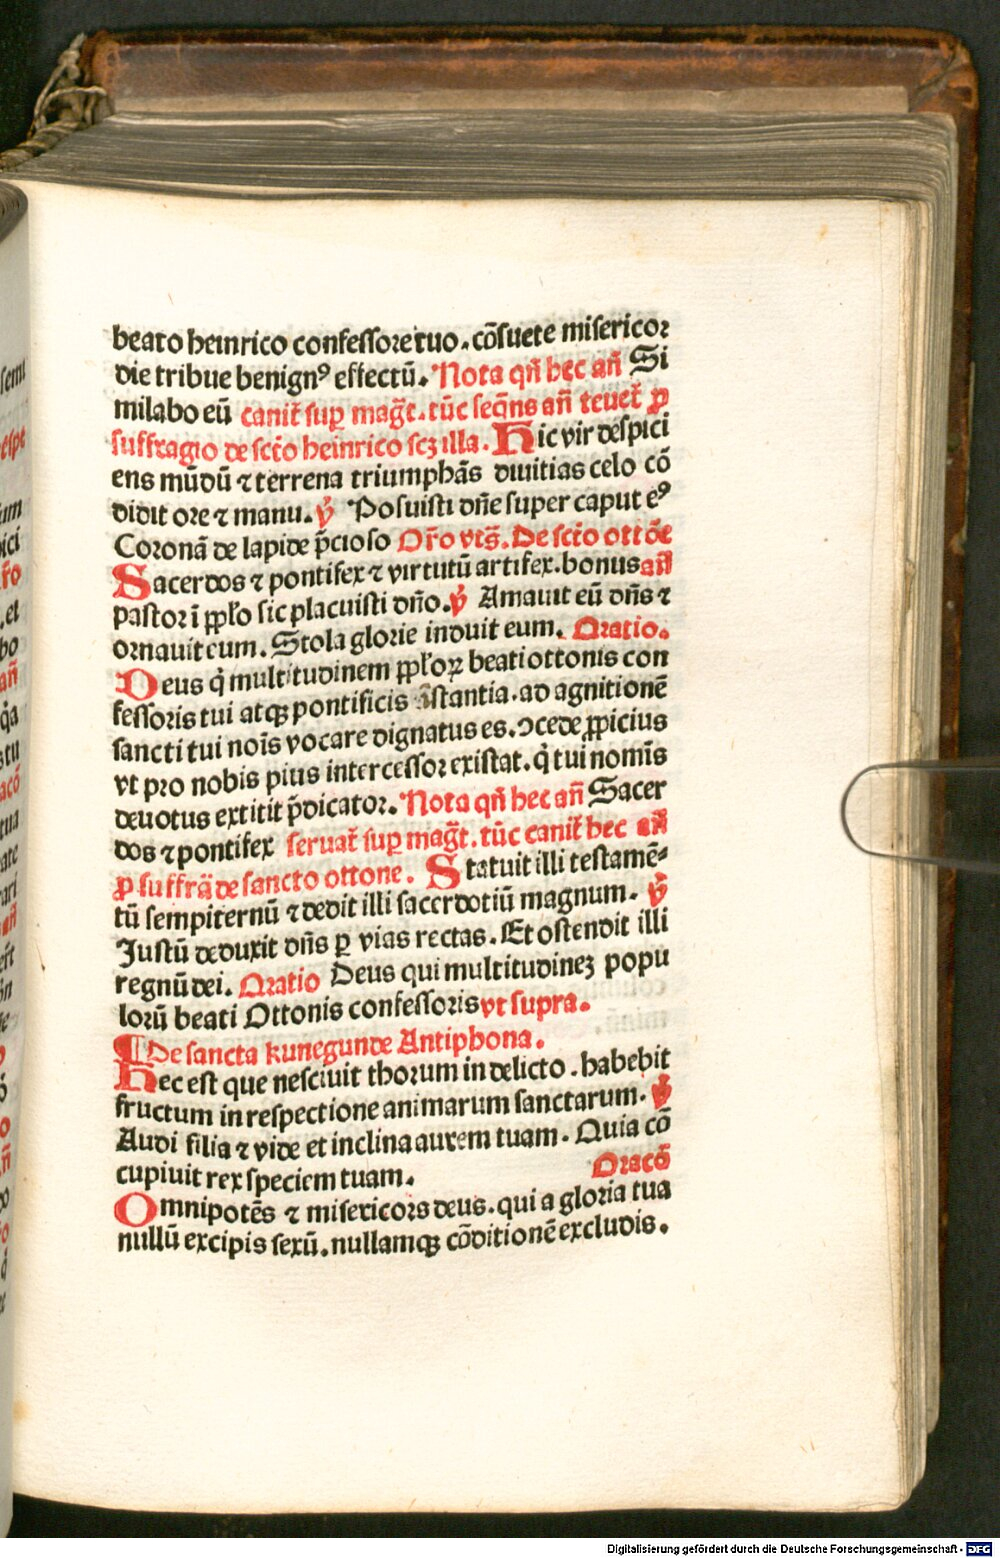 beato heinrico confessore tuo. cōsuete misericor
die tribue benignꝰ effectū. Nota qñ hec añ Si
milabo eū canit̄ suꝑ mag̅t. tūc seqn̄s añ teuet̄ ꝓ
suffragio de scto heinrico scꝫ illa. Hic vir despici
ens mūdū ⁊ terrena triumphās diuitias celo cō
didit ore ⁊ manu. ℣ Posuisti dn̄e super caput eꝰ
Coronā de lapide p̄cioso Or̄o vts̄. De scto ottōe
Sacerdos ⁊ pontifex ⁊ virtutū artifex. bonus añ
pastor ī pp̄lo sic placuisti dn̄o. ℣ Amauit eū dn̄s ⁊
ornauit eum. Stola glorie induit eum. Oratio.
Deus q̇ multitudinem pp̄loꝝ beati ottonis con
fessoris tui atqꝫ pontificis īstantia. ad agnitionē
sancti tui noīs vocare dignatus es. ꝯcede ꝓpicius
vt pro nobis pius intercessor existat. q̇ tui nomīs
deuotus extitit p̄dicator. Nota qñ hec añ Sacer
dos ⁊ pontifex seruat̄ suꝑ mag̅t. tūc canit̄ hec añ
ꝓ suffrā de sancto ottone. Statuit illi testamē⸗
tū sempiternū ⁊ dedit illi sacerdotiū magnum. ℣
Justū deduxit dn̄s ꝑ vias rectas. Et ostendit illi
regnū dei. Oratio Deus qui multitudineꝫ popu
lorū beati Ottonis confessoris vt supra.
¶ De sancta kunegunde Antiphona.
Hec est que nesciuit thorum in delicto. habebit
fructum in respectione animarum sanctarum. ℣
Audi filia ⁊ vide et inclina aurem tuam. Quia cō
cupiuit rex speciem tuam. Oracō
Omnipotēs ⁊ misericors deus. qui a gloria tua
nullū excipis sexū. nullamqꝫ cōditionē excludis.
Digitalisierung gefördert durch die Deutsche Forschungsgemeinschaft - DFG